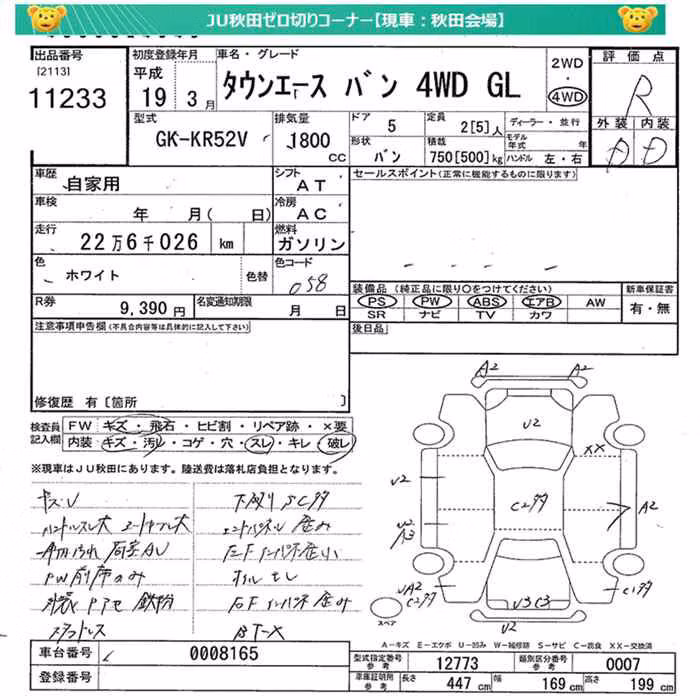 JU秋田ゼロ切りコーナー【現車：秋田会場】
出品番号
[2113]
11233
初度登録年月
平成
19 3月
車名・グレード
タウンエース バン 4WD GL
2WD
・
4WD
評価点
R
外装 内装
D D
型式
GK-KR52V
排気量
1800
CC
ドア
5
定員
2[5]人
形状
バン
積載
750[500]kg
ディーラー・並行
モデル年式 年
ハンドル 左・右
車歴
自家用
シフト
AT
車検
年 月( 日)
冷房
AC
走行
22万6千026 km
燃料
ガソリン
色
ホワイト
色替
色コード
058
R券
9,390円
名変通知期限
月 日
セールスポイント(正常に機能するものに限ります)
装備品 (純正品に限り○をつけてください)
PS PW ABS エアB AW
SR ナビ TV カワ
新車保証書
有・無
後日品
注意事項申告欄(不具合内容等は具体的に記入して下さい)
修復歴 有[箇所 ]
検査員
記入欄
FW キズ・飛石・ヒビ割・リペア跡・×要
内装 キズ・汚レ・コゲ・穴・スレ・キレ・破レ
※現車はJU秋田にあります。陸送費は落札店負担となります。
キズ・U
PW前席のみ
下廻り
A2 A2
U2
XX
U2
A2
U2
A3
スペア
U2
A－キズ E－エクボ U－凹み W－補修跡 S－サビ C－腐食 XX－交換済
車台番号
0008165
登録番号
型式指定番号
参考
12773
類別区分番号
参考
0007
車庫証明用
参考
長さ 447 cm 幅 169 cm 高さ 199 cm